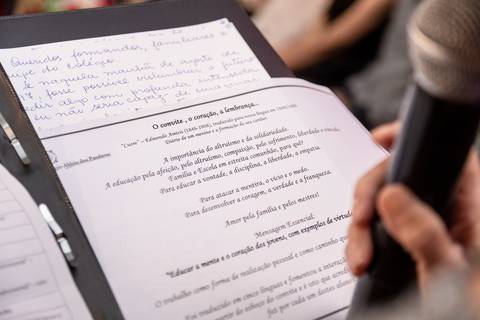 Queridos formandos, familiares e
upe do colégio
naquela manhã de agosto de
fosse possível vislumbrar o futuro
dir algo com profunda intensidade
eu não seria capaz de
O convite, o coração, a lembrança...
"Cuore" – Edmondo Amicis (1846-1908), traduzido para nossa língua em
Diário de um menino e a formação do seu caráter.
dos Pandavas
A importância do altruísmo e da solidariedade.
A educação pela afeição, pelo altruísmo, compaixão, pelo sofrimento, liberdade e
Família e Escola em estreita comunhão, para quê?
Para educar a vontade, a disciplina, a liberdade, a empatia.
Para atacar a mentira, o vício e o medo.
Para desenvolver a coragem, a verdade e a franqueza.
Amor pela família e pelos mestres!
Mensagem Essencial:
"Educar a mente e o coração dos jovens, com exemplos de virtude
O trabalho como forma de realização pessoal e como caminho
Foi traduzido em cinco línguas e fomentou a interação
partir do esforço do convite e é isto que
faz parte cada um destes